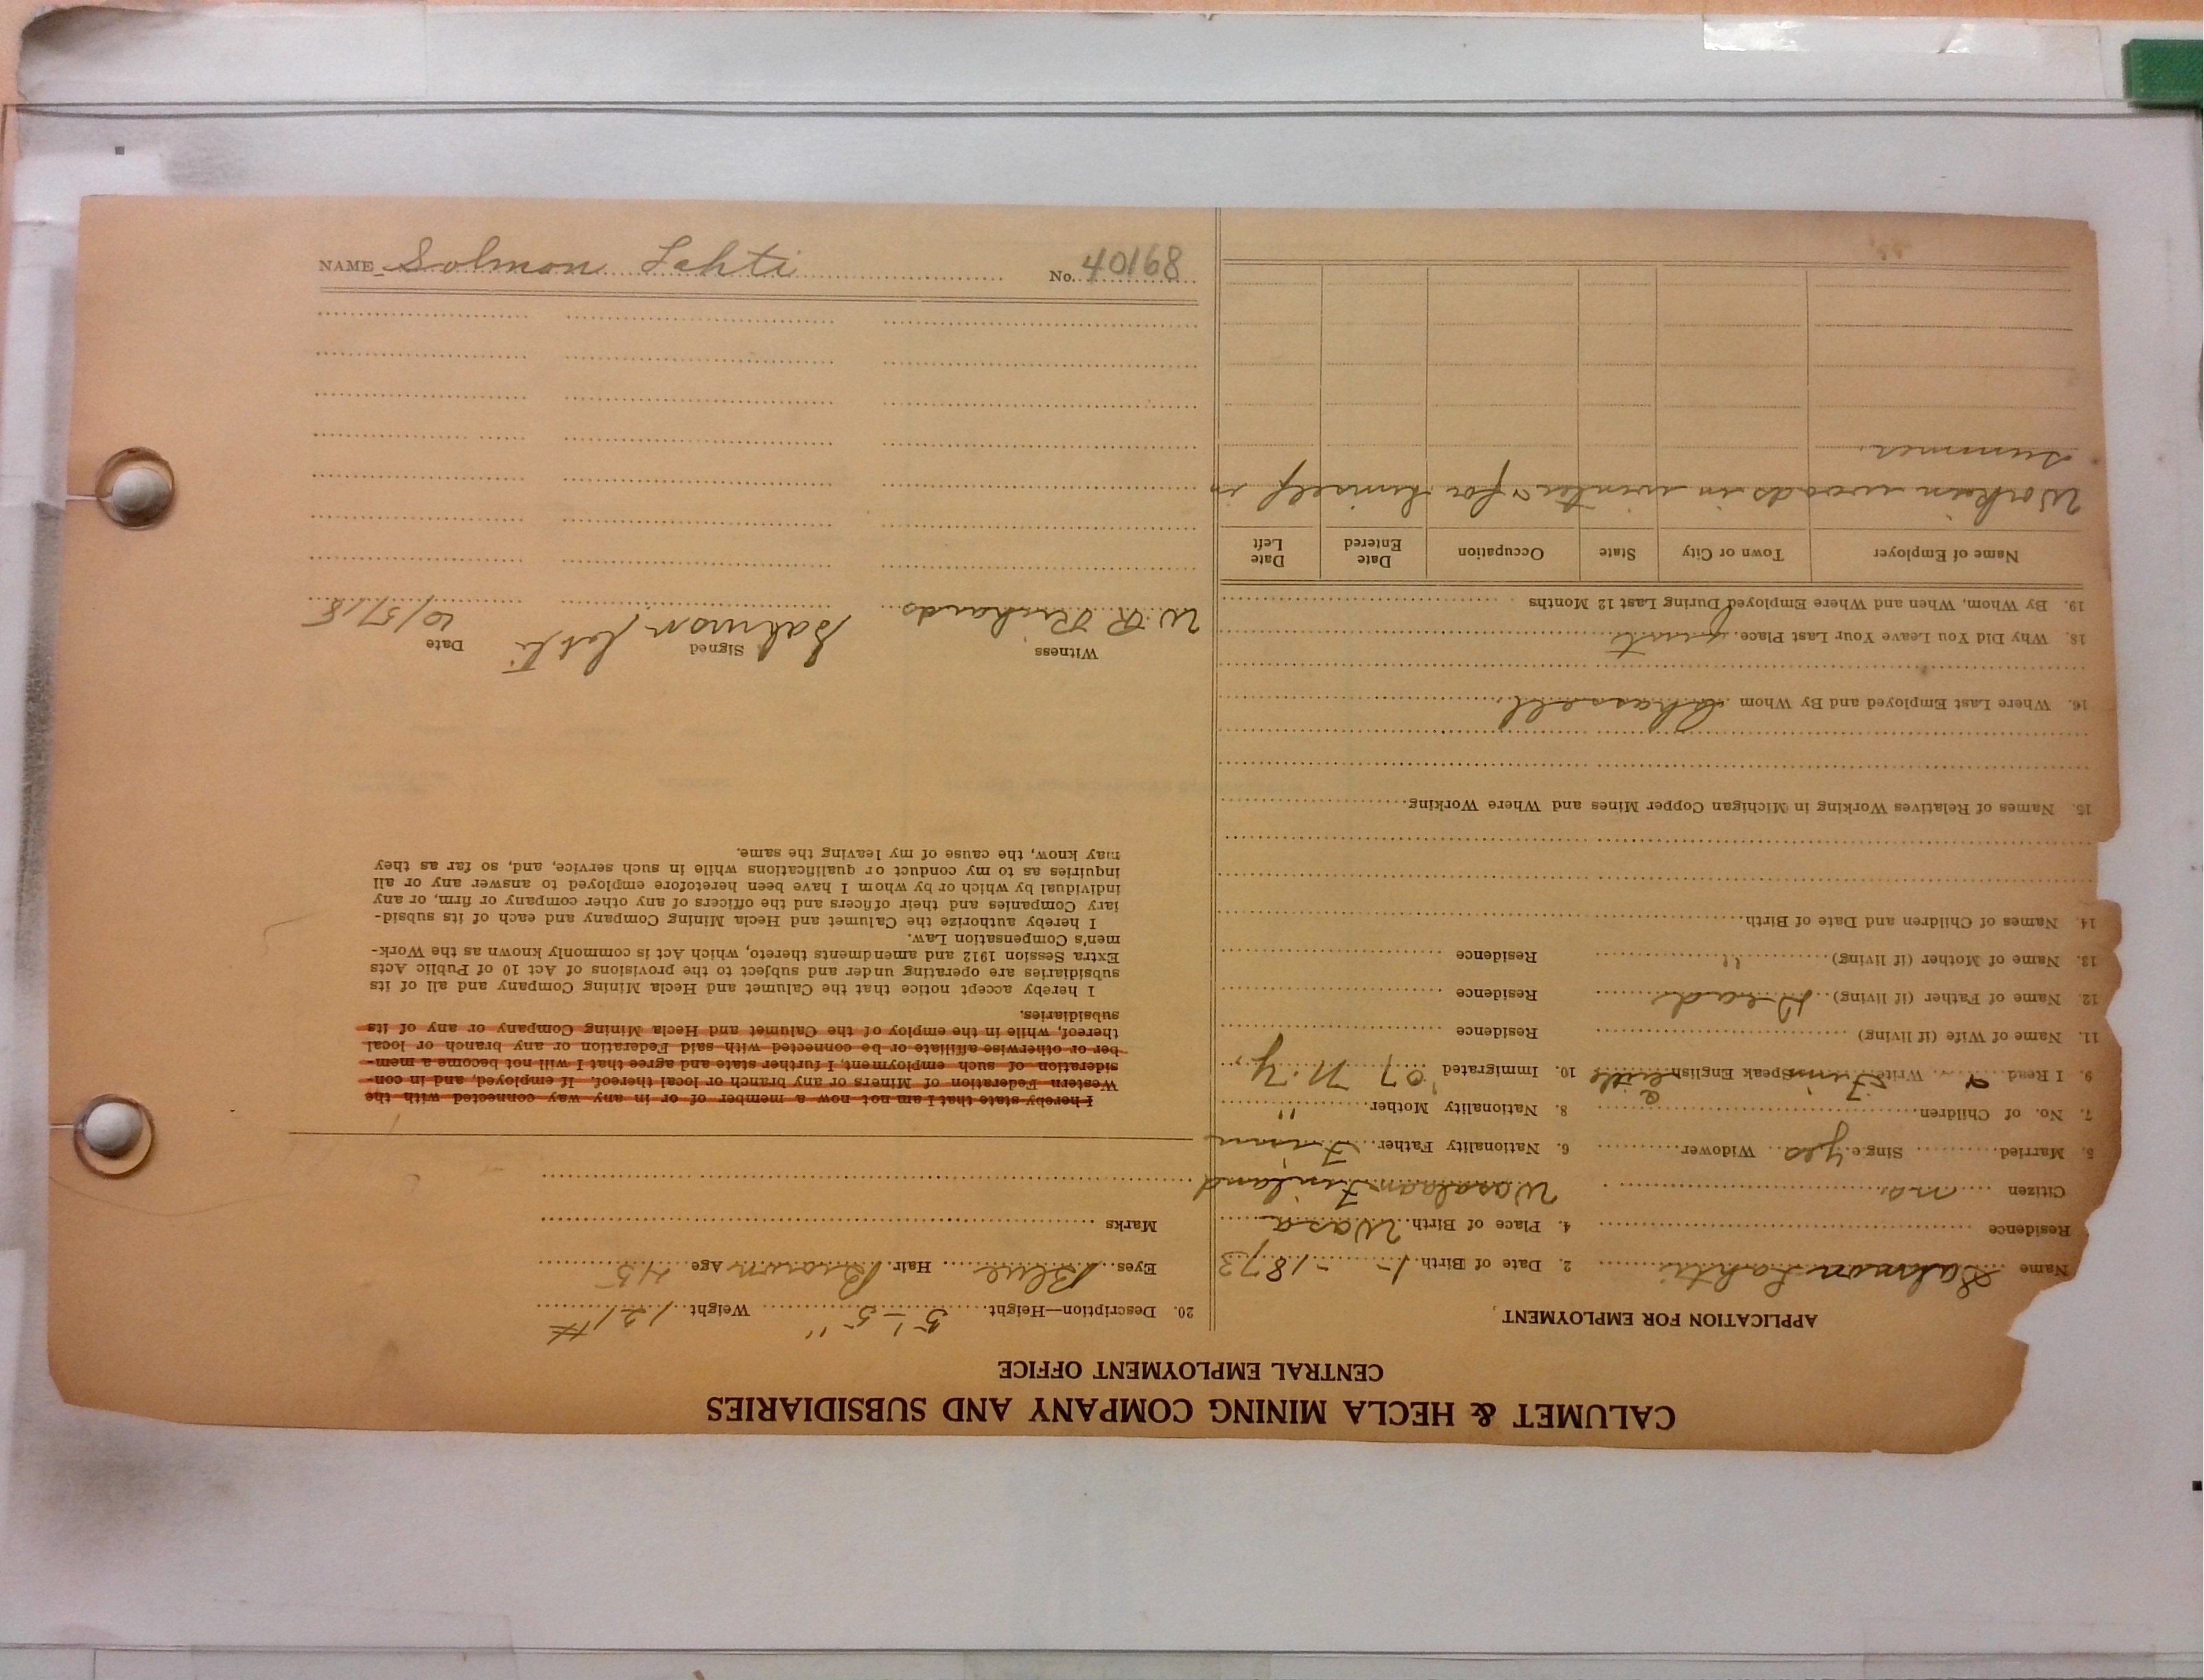 CALUMET & HECLA MINING COMPANY AND SUBSIDIARIES
CENTRAL EMPLOYMENT OFFICE
APPLICATION FOR EMPLOYMENT
Name Salmon Lahti 2. Date of Birth 1- -1873
Residence 4. Place of Birth Wasa
Citizen no. Wasalaan Finland
5. Married Single yes Widower 6. Nationality Father Finn
7. No. of Children 8. Nationality Mother "
9. I Read & Write Finn Speak English a little 10. Immigrated '07 N.Y.
11. Name of Wife (if living) Residence
12. Name of Father (if living) Dead Residence
13. Name of Mother (if living) " Residence
14. Names of Children and Date of Birth
15. Names of Relatives Working in Michigan Copper Mines and Where Working
16. Where Last Employed and By Whom Chassell
18. Why Did You Leave Your Last Place. quit
19. By Whom, When and Where Employed During Last 12 Months
Name of Employer Town or City State Occupation Date Entered Date Left
Work in woods in winter & for himself in
summer
20. Description—Height 5'-5" Weight 121#
Eyes Blue Hair Brown Age 45
Marks
I hereby state that I am not now a member of or in any way connected with the
Western Federation of Miners or any branch or local thereof. If employed, and in con-
sideration of such employment, I further state and agree that I will not become a mem-
ber or otherwise affiliate or be connected with said Federation or any branch or local
thereof, while in the employ of the Calumet and Hecla Mining Company or any of its
subsidiaries.
I hereby accept notice that the Calumet and Hecla Mining Company and all of its
subsidiaries are operating under and subject to the provisions of Act 10 of Public Acts
Extra Session 1912 and amendments thereto, which Act is commonly known as the Work-
men's Compensation Law.
I hereby authorize the Calumet and Hecla Mining Company and each of its subsid-
iary Companies and their officers and the officers of any other company or firm, or any
individual by which or by whom I have been heretofore employed to answer any or all
inquiries as to my conduct or qualifications while in such service, and, so far as they
may know, the cause of my leaving the same.
Witness Signed Date
W. R. Richards Salmon Lahti 10/5/18
NAME Solmon Lahti No. 40168